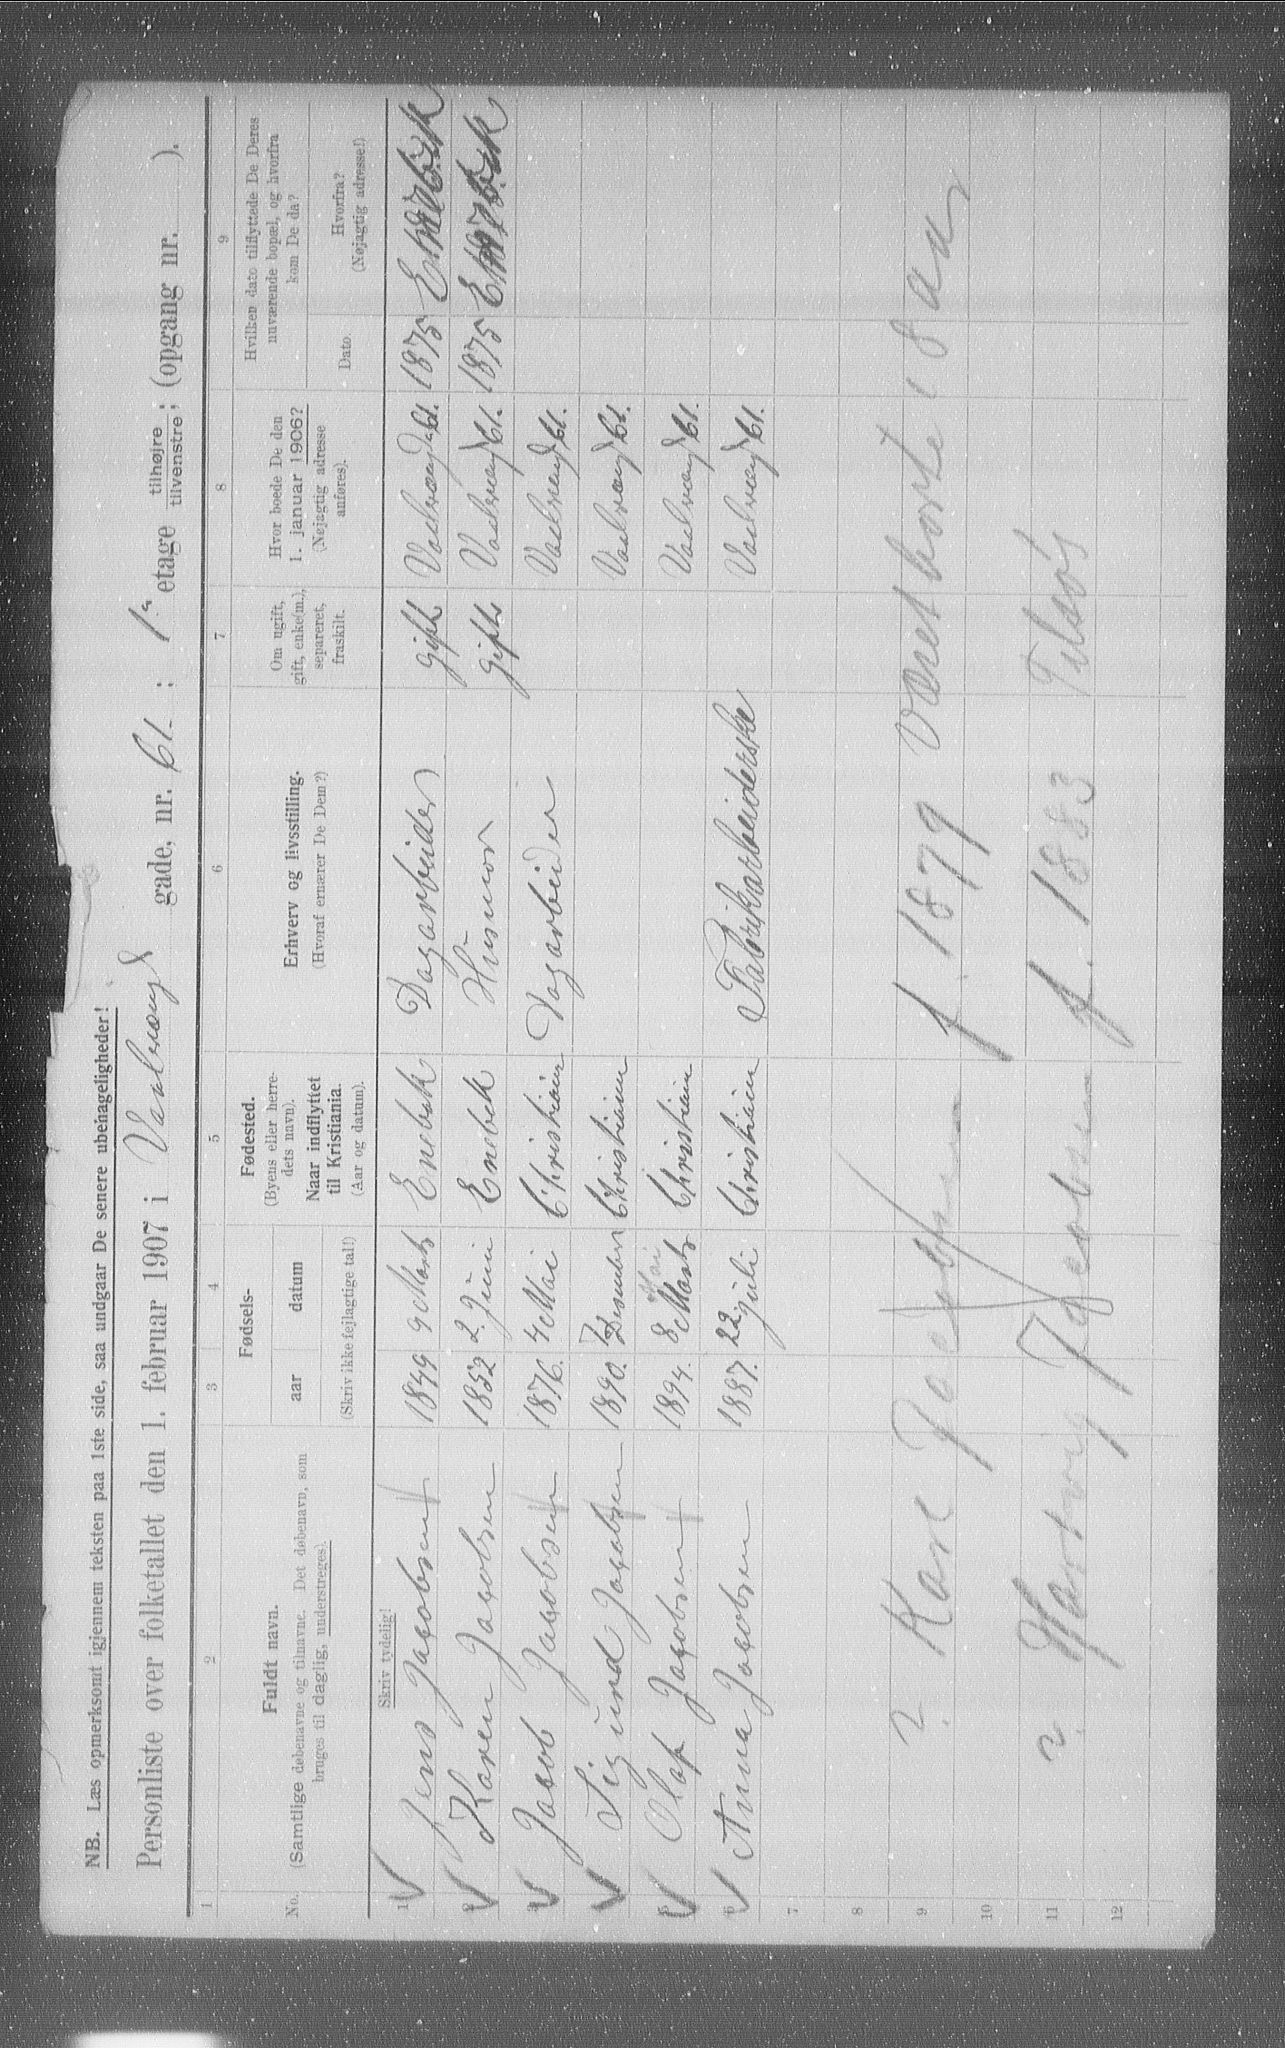 NB. Læs opmerksomt igjennem teksten paa 1ste side, saa undgaar De senere ubehageligheder!
Personliste over folketallet den 1. februar 1907 i Vaalereng gade, nr. 61. : 1ª etage tilhøjre / tilvenstre; (opgang nr. ).
1 2 3 4 5 6 7 8 9
No.
Fuldt navn.
(Samtlige døbenavne og tilnavne. Det døbenavn, som bruges til daglig, understreges).
Fødsels-
aar datum
(Skriv ikke fejlagtige tal!)
Fødested.
(Byens eller herredets navn).
Naar indflyttet til Kristiania.
(Aar og datum).
Erhverv og livsstilling.
(Hvoraf ernærer De Dem?)
Om ugift, gift, enke(m.), separeret, fraskilt.
Hvor boede De den 1. januar 1906?
(Nøjagtig adresse anføres).
Hvilken dato tilflyttede De Deres nuværende bopæl, og hvorfra kom De da?
Dato
Hvorfra?
(Nøjagtig adresse!)
Skriv tydelig!
1 Jens Jacobsen 1849 9 Marts Enebak Dagarbeider gift 61. 1875
2 Karen Jacobsen 1852 2. Juni Enebek Husmor gift 61. 1875
3 Jacob Jacobsen 1876. 4 Mai Christiania Dagarbeider 61.
4 Sigurd Jacobsen 1890. Desember Christiania 61.
5 Olaf Jacobsen 1894. 8 Marts Mai Christiania 61.
6 Anna Jacobsen 1887. 22 juli Christiania Fabrikarbeiderske 61.
7
8
9 ? Karl Jacobsen f. 1879 været borte i 8 aar
10
11 ? Hartvig Jacobsen f. 1883 Tilsøs
12